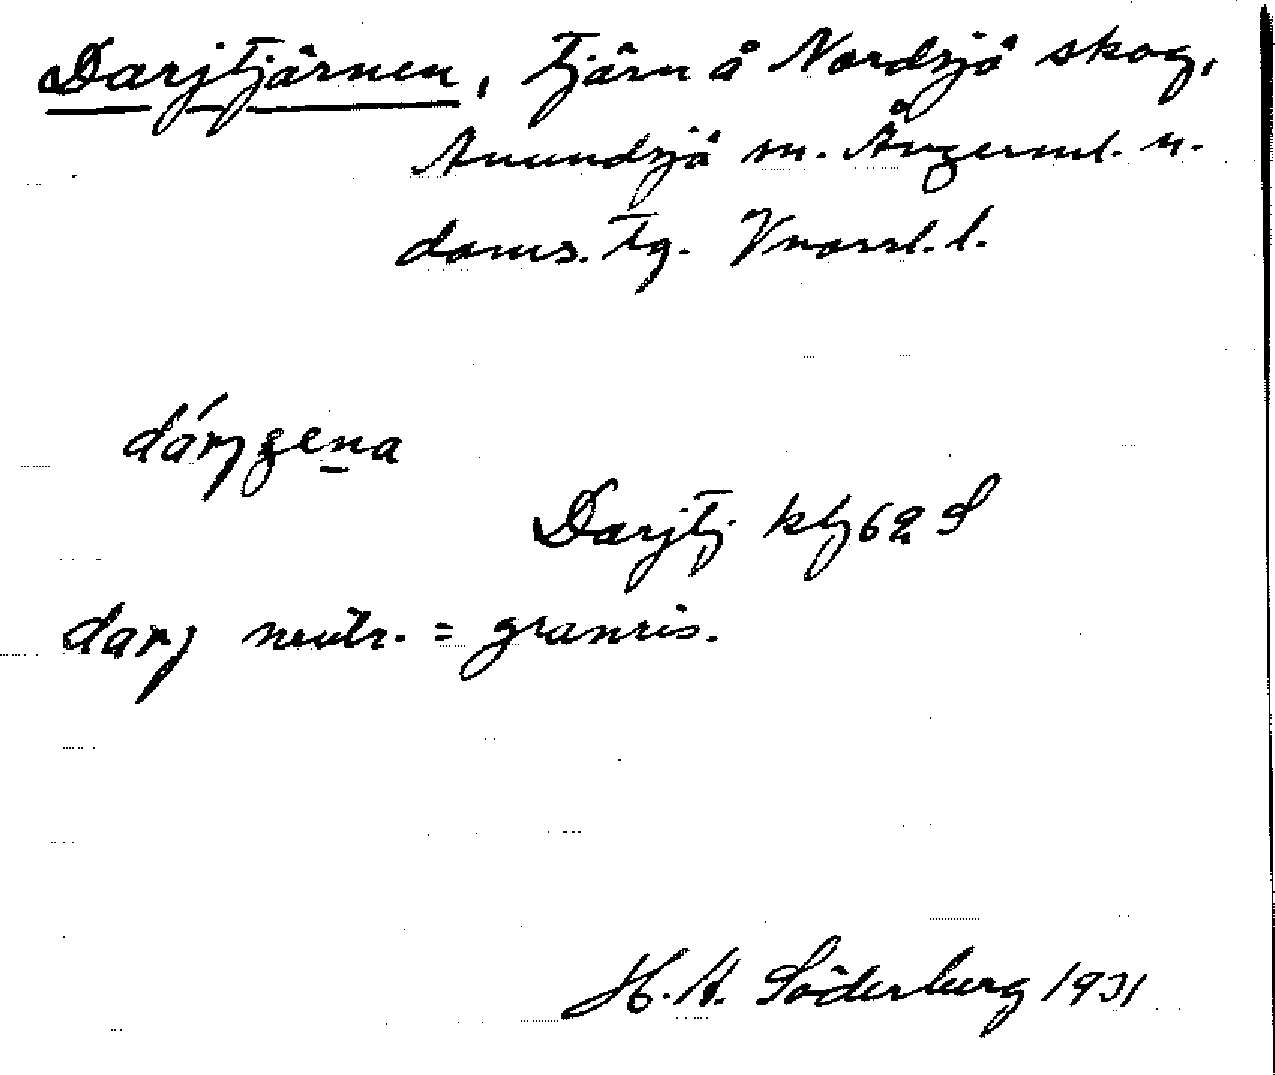 Darjtjärnen, tjärn å Nordsjö skog,
Anundsjö sn. Ångerml. n.
doms. tg. Vnorrl. l.
dárjgena
Darjtj. kbj 62 S
darj neutr. = granris.
H. A. Söderberg 1931